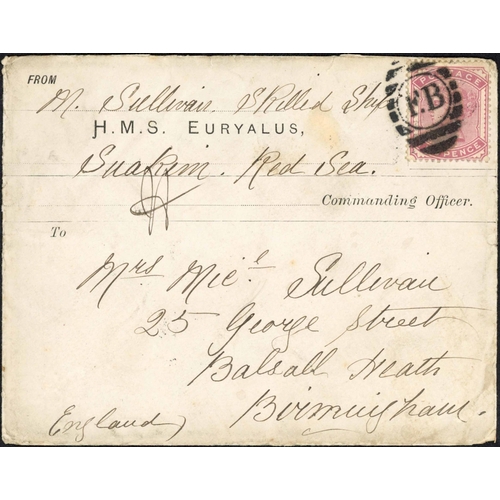 FROM
M. Sullivan. Skilled Ship
H.M.S. EURYALUS,
Suakim. Red Sea.
Commanding Officer.
To
Mrs Mic.l Sullivan
25 George Street
Balsall Heath
Birmingham.
England
POSTAGE
PENCE
F.B